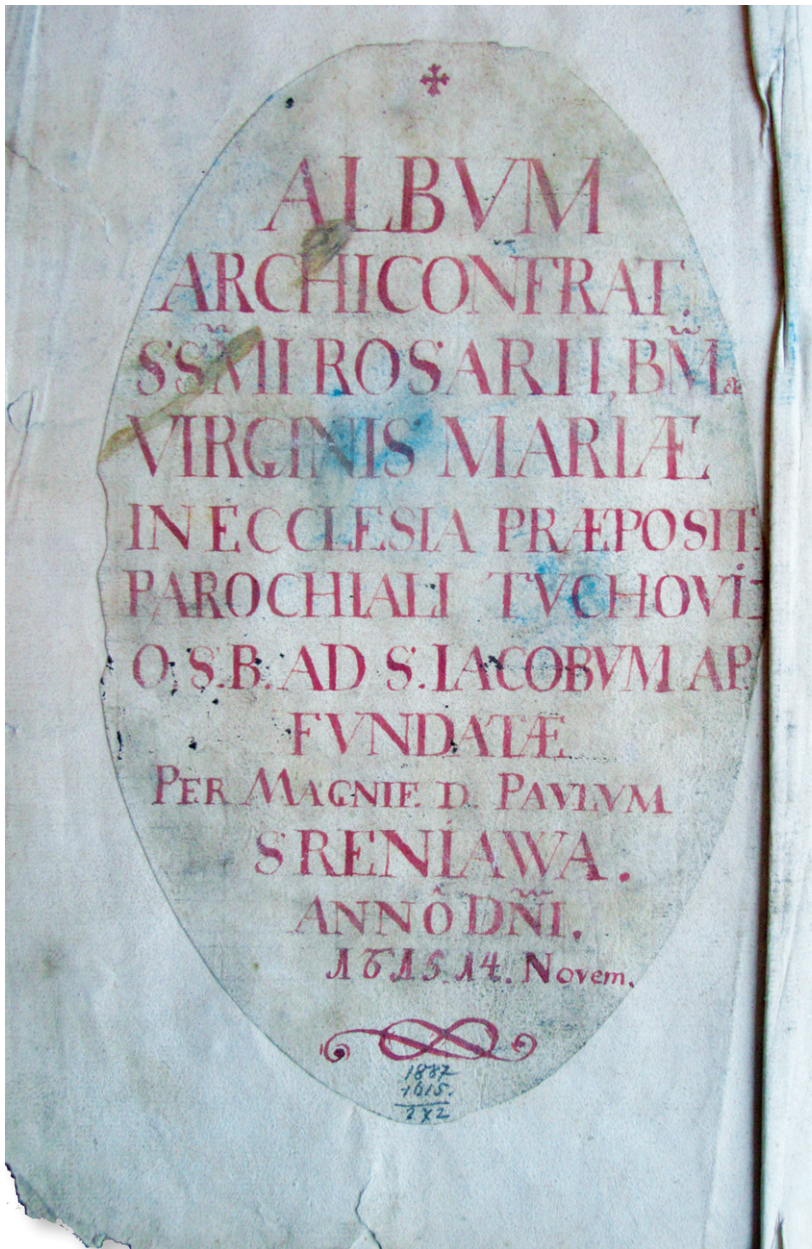 ALBVM
ARCHICONFRAT.
SSM̃I ROSARII, BM̃æ
VIRGINIS MARIÆ
IN ECCLESIA PRÆPOSIT.
PAROCHIALI TVCHOVI
O.S.B. AD S. IACOBVM AP.
FVNDATÆ
PER MAGNIF. D. PAVLVM
SRENIAWA.
ANNÔ DÑI.
1615. 14. Novem.
1887
1615.
272